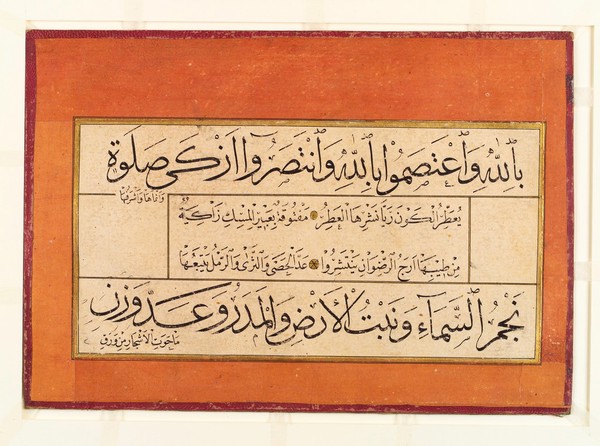 بِاللهِ وَاعْتَصَمُوا بِاللهِ وَانْتَصَرُوا اَزْكٰى صَلٰوةٍ
وَاَنْمَاهَا وَاَشْرَفُهَا
يُعَطِّرُ الْكَوْنَ رَيَّا نَشْرِهَا الْعَطِرُ مَفْتُوقَةً بِعَبِيرِ الْمِسْكِ زَاكِيَةً
مِنْ طِيبِهَا اَرَجُ الرِّضْوَانِ يَنْتَشِرُوا عَدَّ الْحَصٰى وَالثَّرٰى وَالرَّمْلِ يَتْبَعُهَا
نَجْمُ السَّمَآءِ وَنَبْتُ الْاَرْضِ وَالْمَدَرُ وَعَدَّ وَزْنِ
مَا حَوَتِ الْاَشْجَارُ مِنْ وَرَقٍ